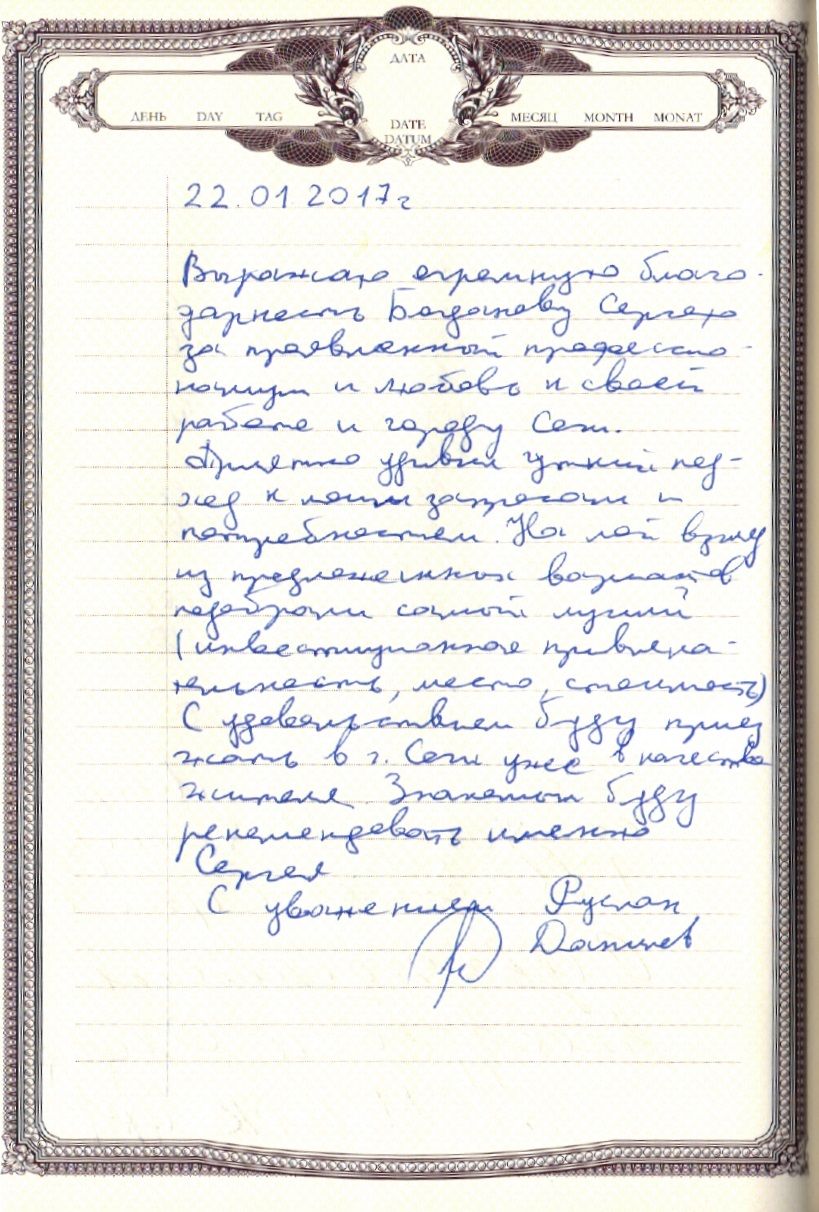 ДАТА
ДЕНЬ DAY TAG
DATE
DATUM
МЕСЯЦ MONTH MONAT
22.01 2017г
Выражаю огромную благо-
дарность Богданову Сергею
за проявленный професcио-
нализм и любовь к своей
работе и городу Сочи.
Приятно удивил чуткий под-
ход к моим запросам и
потребностям. На мой взгляд
из предложенных вариантов
подобрали самый лучший
(инвестиционное привлека-
тельность, место, стоимость)
С удовольствием буду приез
жать в г. Сочи уже в качестве
жителя. Знакомым буду
рекомендовать именно
Сергея
С уважением Руслан